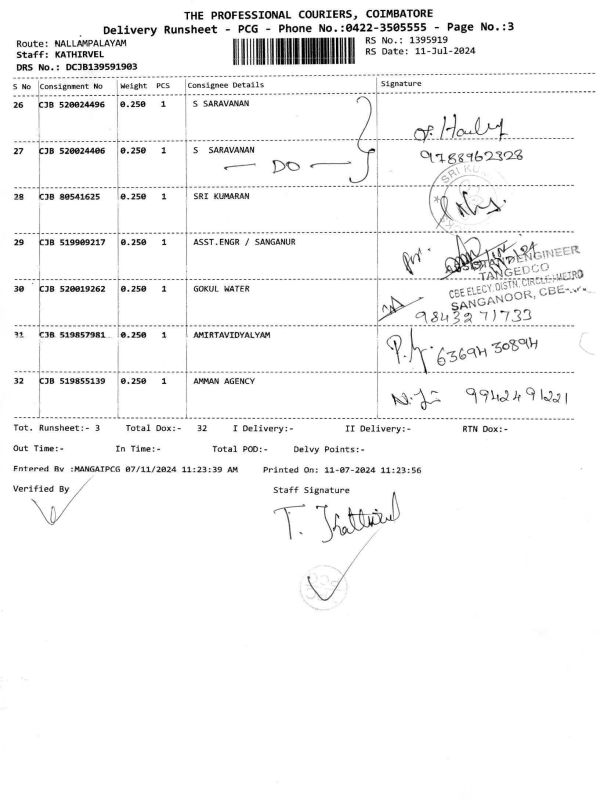 THE PROFESSIONAL COURIERS, COIMBATORE
Delivery Runsheet - PCG - Phone No.:0422-3505555 - Page No.:3
Route: NALLAMPALAYAM RS No.: 1395919
Staff: KATHIRVEL RS Date: 11-Jul-2024
DRS No.: DCJB139591903
S No Consignment No Weight PCS Consignee Details Signature
26 CJB 520024496 0.250 1 S SARAVANAN
27 CJB 520024406 0.250 1 S SARAVANAN 9788962328
— DO —
SRI
28 CJB 80541625 0.250 1 SRI KUMARAN
29 CJB 519909217 0.250 1 ASST.ENGR / SANGANUR
ENGINEER
TANGEDCO
CBE ELECY.DISTN.CIRCLE/METRO
SANGANOOR, CBE-
30 CJB 520019262 0.250 1 GOKUL WATER
9843271733
31 CJB 519857981 0.250 1 AMIRTAVIDYALYAM
6369430894
32 CJB 519855139 0.250 1 AMMAN AGENCY
9942491221
Tot. Runsheet:- 3 Total Dox:- 32 I Delivery:- II Delivery:- RTN Dox:-
Out Time:- In Time:- Total POD:- Delvy Points:-
Entered By :MANGAIPCG 07/11/2024 11:23:39 AM Printed On: 11-07-2024 11:23:56
Verified By Staff Signature